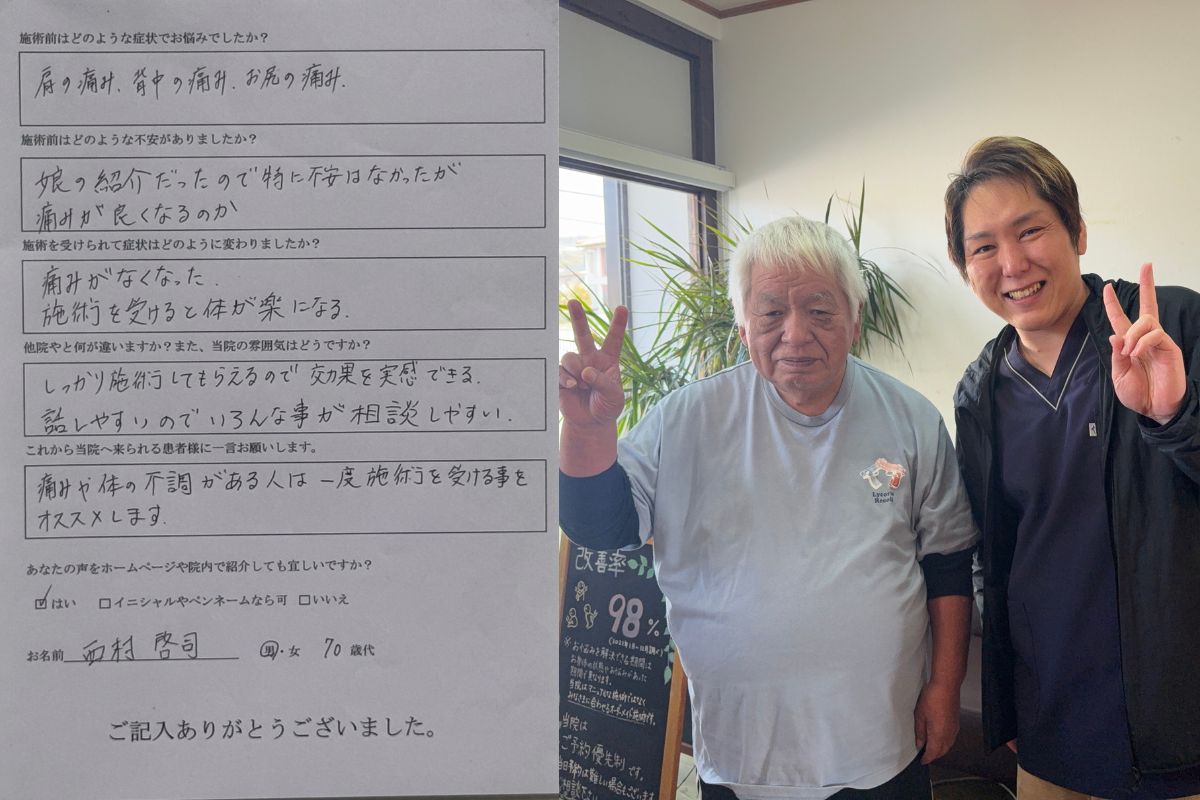 施術前はどのような症状でお悩みでしたか？
肩の痛み、背中の痛み、お尻の痛み.
施術前はどのような不安がありましたか？
娘の紹介だったので特に不安はなかったが
痛みが良くなるのか
施術を受けられて症状はどのように変わりましたか？
痛みがなくなった.
施術を受けると体が楽になる.
他院やと何が違いますか？また、当院の雰囲気はどうですか？
しっかり施術してもらえるので効果を実感できる.
話しやすいのでいろんな事が相談しやすい.
これから当院へ来られる患者様に一言お願いします。
痛みや体の不調がある人は一度施術を受ける事を
オススメします.
あなたの声をホームページや院内で紹介しても宜しいですか？
☑はい □イニシャルやペンネームなら可 □いいえ
お名前 西村 啓司 男・女 70歳代
ご記入ありがとうございました。
Lycoris
Recoil
改善率
98%
※お悩みを解決できる期間は
お身体の状態やお悩みがあった
期間で異なります。
当院はマニュアル的な施術ではなく
みなさまに合わせるオーダーメイド施術です。
当院は
ご予約優先制です。
当日予約は難しい場合もございます